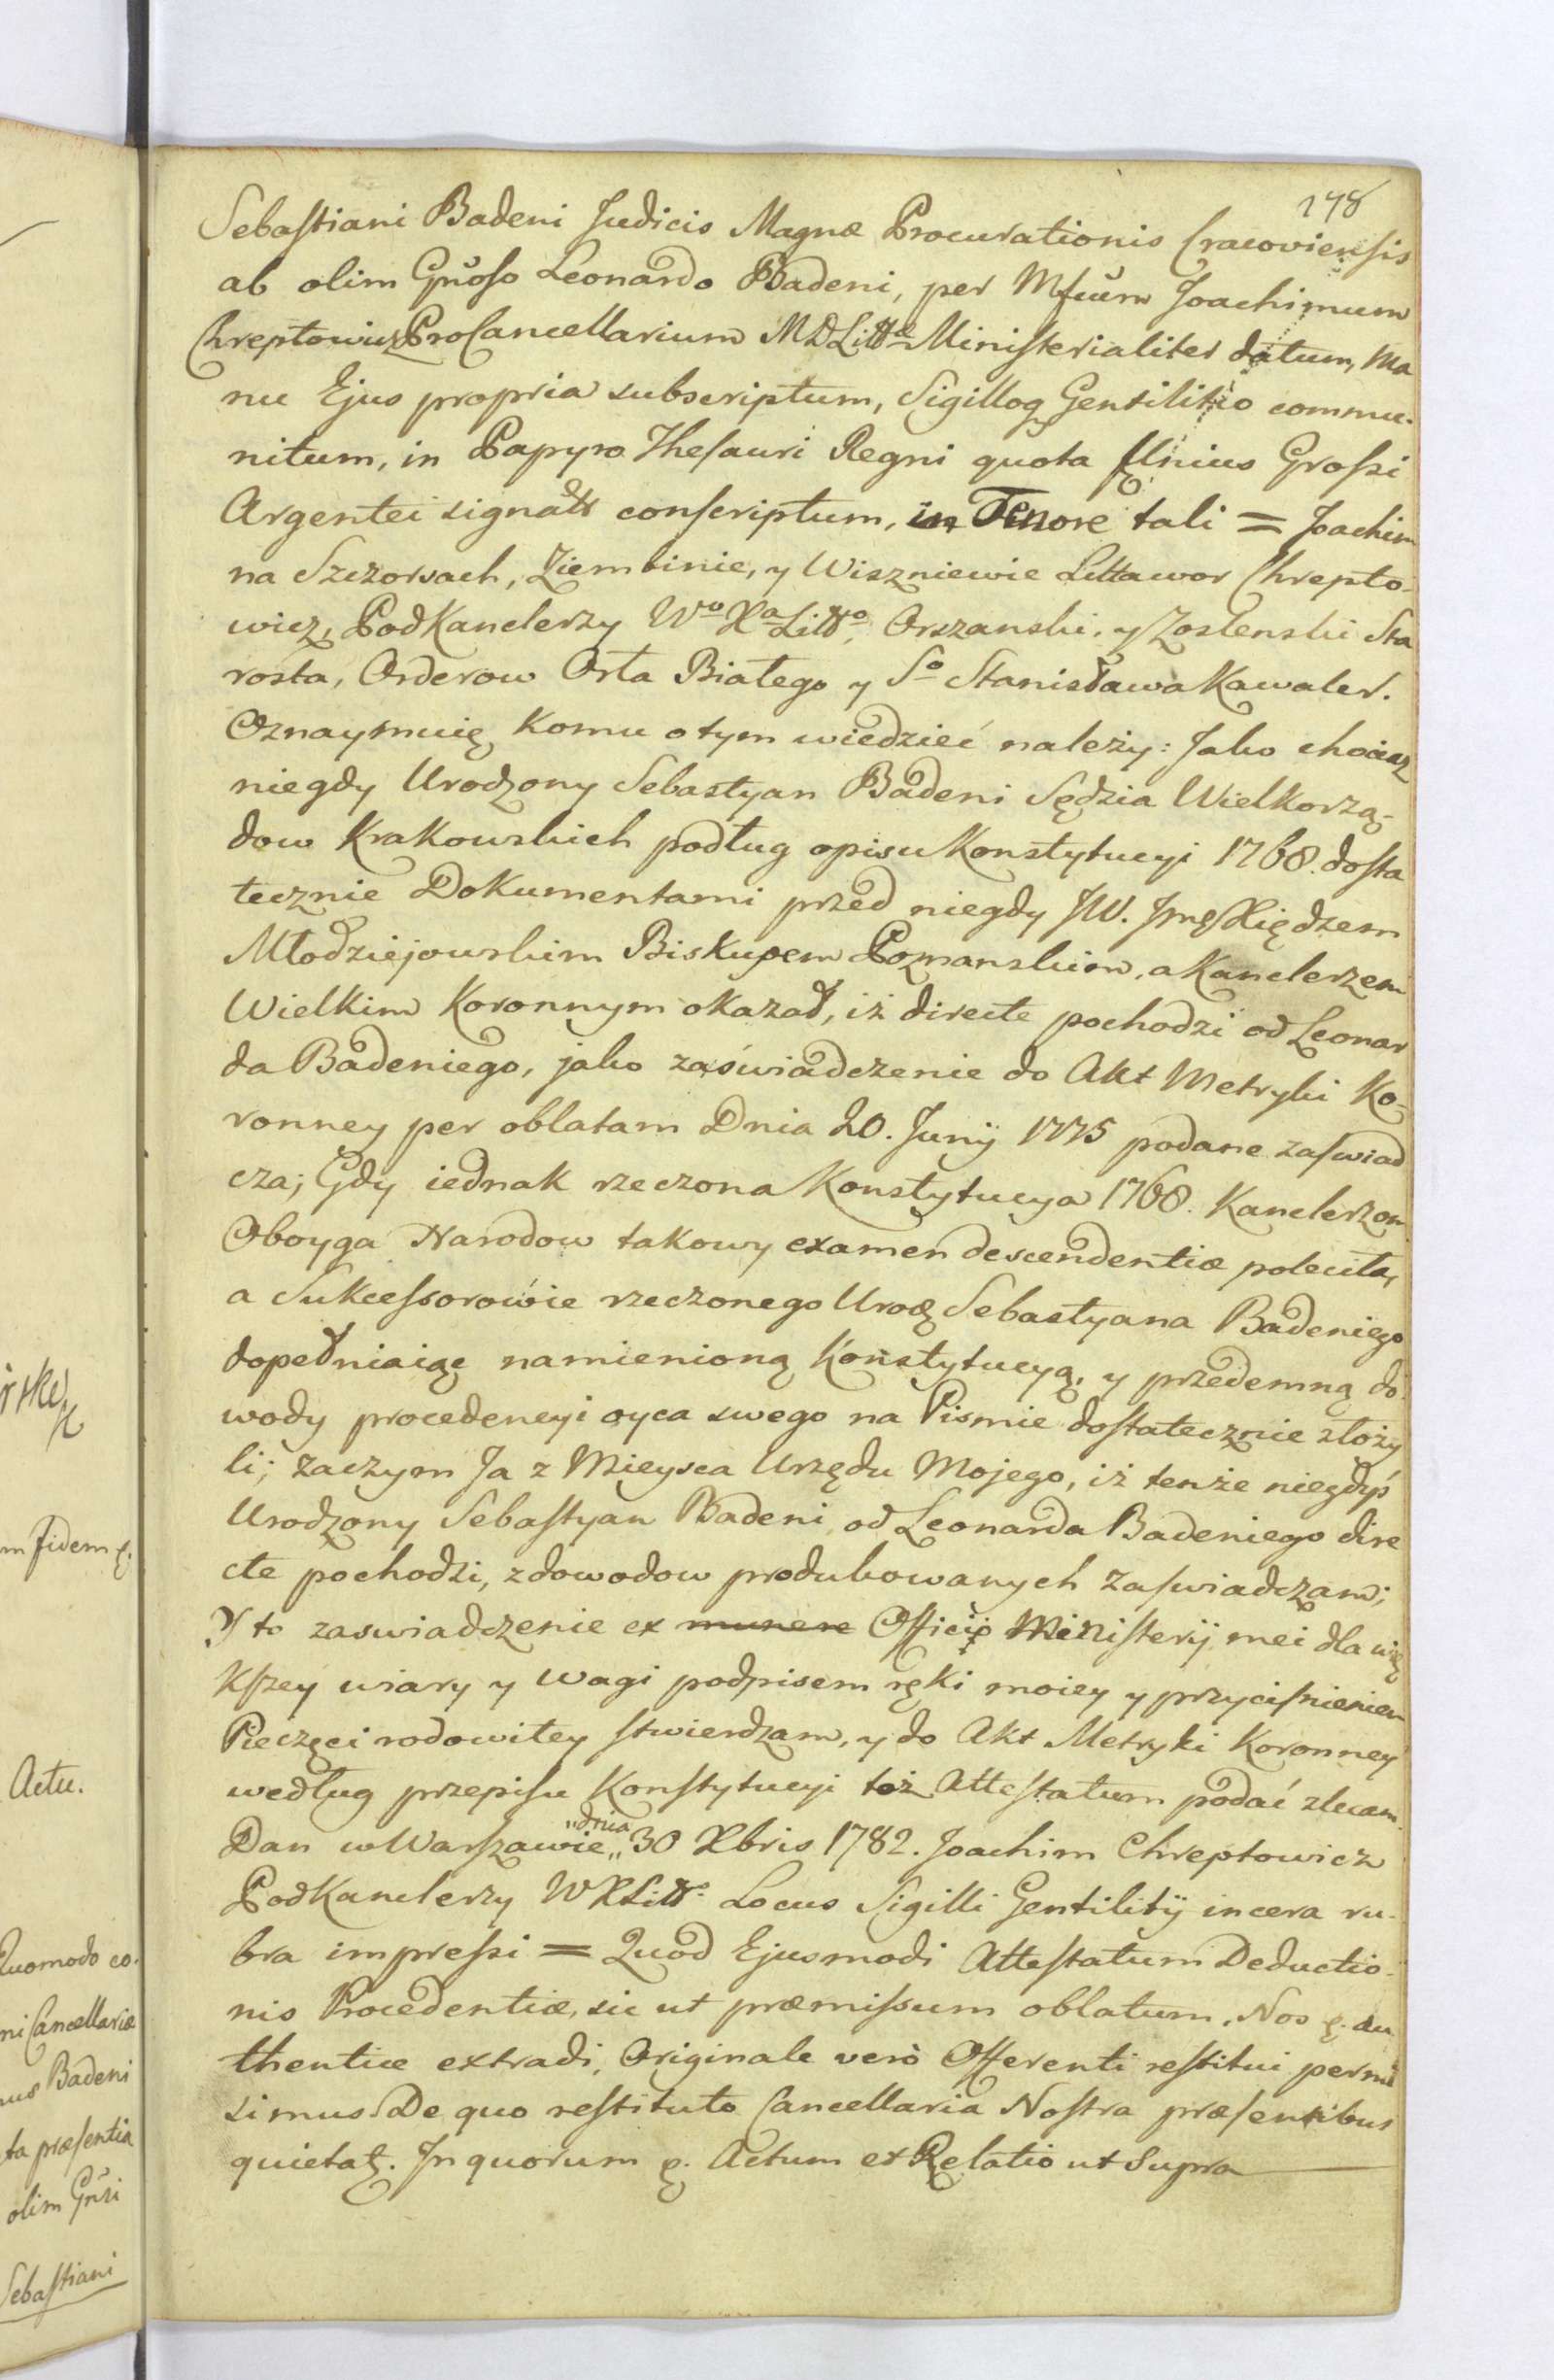 178
Sebastiani Badeni Judicis Magnæ Procurationis Cracoviensis
ab olim Gnoso Leonardo Badeni, per Mfcum Joachimum
Chreptowicz ProCancellarium MDLittæ Ministerialiter datum, Ma
nu Ejus propria subscriptum, Sigilloq Gentilitio commu-
nitum, in Papyro Thesauri Regni quota Unius Grossi
Argentei signata conscriptum, in Tenore tali = Joachim
na Szczorsach, Ziembinie, y Wiszniewie Littawor Chrepto-
wicz, PodKanclerzy Wo Xa Litto, Orszanski, y Zoslenski Sta
rosta, Orderow Orła Białego y So Stanisława Kawaler.
Oznaymuię komu o tym wiedzieć należy: Jako chociasz
niegdy Urodzony Sebastyan Badeni Sędzia Wielkorzą-
dow Krakowskich podług opisu Konstytucyi 1768. dosta
tecznie Dokumentami przed niegdy JW. Jmę Xiędzem
Młodziejowskim Biskupem Poznanskim, a Kanclerzem
Wielkim Koronnym okazał, iż directe pochodzi od Leonar
da Badeniego, jako zaświadczenie do Akt Metryki Ko-
ronney per oblatam Dnia 20. Junij 1775 podane zaswiad
cza; Gdy iednak rzeczona Konstytucya 1768. Kanclerzom
Oboyga Narodow takowy examen descendentiæ poleciła,
a Sukcessorowie rzeczonego Urodz Sebastyana Badeniego
dopełniaiąc namienioną Konstytucyą, y przedemną do-
wody procedencyi oyca swego na Pismie dostatecznie złoży
li; zaczym Ja z Mieysca Urzędu Mojego, iż tenże niegdyś
Urodzony Sebastyan Badeni od Leonarda Badeniego dire
cte pochodzi, z dowodow produkowanych zaswiadczam;
Y to zaswiadczenie ex munere Officij Ministerij mei dla wię
kszey wiary y wagi podpisem ręki moiey y przycisnieniem
Pieczęci rodowitey stwierdzam, y do Akt Metryki Koronney
według przepisu Konstytucyi toż Attestatum podać zlecam.
Dan w Warszawie „dnia„ 30 Xbris 1782. Joachim Chreptowicz
PodKanclerzy WXLitto Locus Sigilli Gentilitij in cera ru-
bra impressi = Quod Ejusmodi Attestatum Deductio-
nis Procedentiæ, sic ut præmissum oblatum, Nos au
thentice extradi, Originale verò Offerenti restitui permi
simus. De quo restituto Cancellaria Nostra præsentibus
quietat. In quorum Actum et Relatio ut Supra
m fidem
Actu.
Quomodo co-
ni Cancellariæ
nus Badeni
ta præsentia
olim Gnsi
Sebastiani